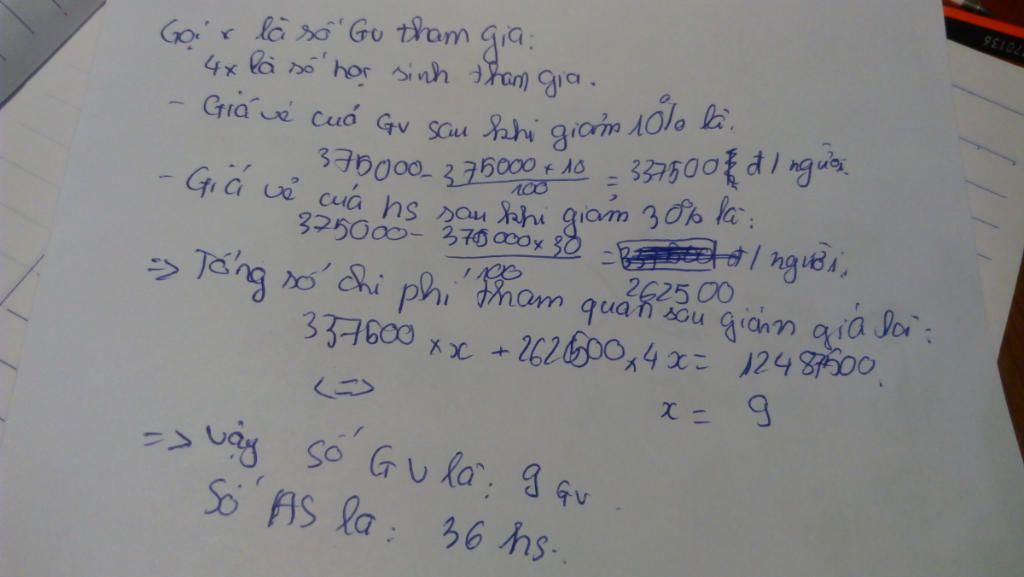 Gọi x là số GV tham gia:
4x là số học sinh tham gia.
- Giá vé cuả GV sau khi giảm 10% là.
375000 - 375000 × 10 / 100 = 337500 đ/1 người.
- Giá vé cuả hs sau khi giảm 30% là:
375000 - 375000 × 30 / 100 = đ/1 người.
262500
=> Tổng số chi phí tham quan sau giảm giá là:
337500 × x + 262500 × 4x = 12487500.
<=> x = 9
=> Vậy số GV là: 9 GV.
Số HS là: 36 hs.
70136